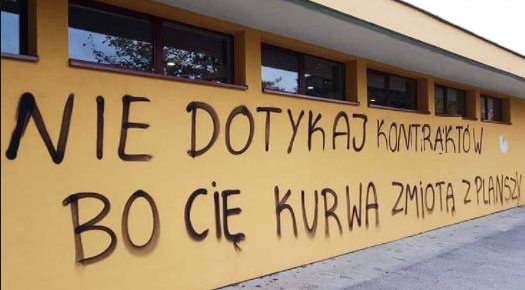 NIE DOTYKAJ KONTRAKTÓW
BO CIĘ KURWA ZMIOTĄ Z PLANSZY